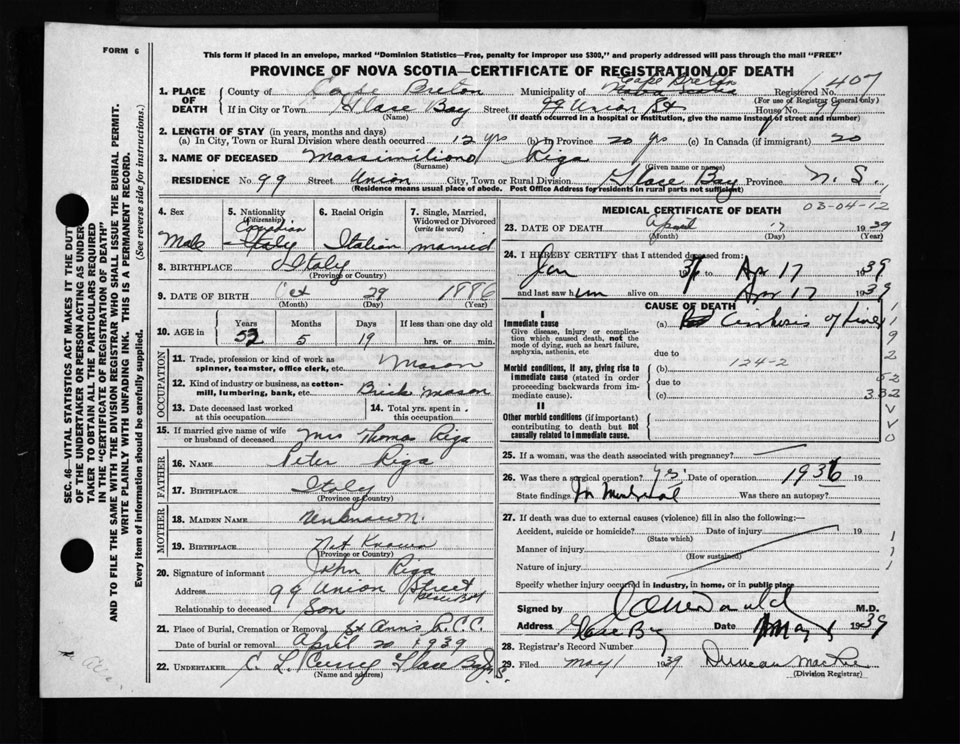 FORM 6
This form if placed in an envelope, marked "Dominion Statistics—Free, penalty for improper use $300," and properly addressed will pass through the mail "FREE"
PROVINCE OF NOVA SCOTIA—CERTIFICATE OF REGISTRATION OF DEATH
1. PLACE OF DEATH County of Cape Breton Municipality of Cape Breton Nova Scotia Registered No. 407
(For use of Registrar General only)
If in City or Town Glace Bay Street 99 Union St House No. 99
(Name) (If death occurred in a hospital or institution, give the name instead of street and number)
2. LENGTH OF STAY (in years, months and days)
(a) In City, Town or Rural Division where death occurred 12 yrs (b) In Province 20 yrs (c) In Canada (if immigrant) 20
3. NAME OF DECEASED Massimiliono Riga
(Surname) (Given name or names)
RESIDENCE No. 99 Street Union City, Town or Rural Division Glace Bay Province N. S.
(Residence means usual place of abode. Post Office Address for residents in rural parts not sufficient)
4. Sex Male
5. Nationality (Citizenship) Canadian Italy
6. Racial Origin Italian
7. Single, Married, Widowed or Divorced (write the word) married
8. BIRTHPLACE Italy
(Province or Country)
9. DATE OF BIRTH Oct 29 1886
(Month) (Day) (Year)
10. AGE in Years 52 Months 5 Days 19 If less than one day old hrs. or min.
OCCUPATION
11. Trade, profession or kind of work as spinner, teamster, office clerk, etc. Mason
12. Kind of industry or business, as cotton-mill, lumbering, bank, etc. Brick Mason
13. Date deceased last worked at this occupation
14. Total yrs. spent in this occupation
15. If married give name of wife or husband of deceased Mrs Thomas Riga
FATHER
16. NAME Peter Riga
17. BIRTHPLACE Italy
(Province or Country)
MOTHER
18. MAIDEN NAME Unknown.
19. BIRTHPLACE Not Known
(Province or Country)
20. Signature of informant John Riga
Address 99 Union Street Glace Bay
Relationship to deceased Son
21. Place of Burial, Cremation or Removal St Anns R.C.C.
Date of burial or removal April 20 1939
22. UNDERTAKER C. L. Curry Glace Bay N. S.
(Name and address)
MEDICAL CERTIFICATE OF DEATH
03-04-12
23. DATE OF DEATH April 17 1939
(Month) (Day) (Year)
24. I HEREBY CERTIFY that I attended deceased from:
Jan 1936 to Apr 17 1939
and last saw him alive on Apr 17 1939
CAUSE OF DEATH
I
Immediate cause
Give disease, injury or complication which caused death, not the mode of dying, such as heart failure, asphyxia, asthenia, etc
(a) Cirrhosis of Liver
due to
Morbid conditions, if any, giving rise to immediate cause (stated in order proceeding backwards from immediate cause).
(b) 124-2
due to
(c)
II
Other morbid conditions (if important) contributing to death but not causally related to immediate cause.
25. If a woman, was the death associated with pregnancy?
26. Was there a surgical operation? Yes Date of operation 1936 19
State findings In Montreal Was there an autopsy?
27. If death was due to external causes (violence) fill in also the following:—
Accident, suicide or homicide? Date of injury 19
(State which)
Manner of injury
(How sustained)
Nature of injury
Specify whether injury occurred in industry, in home, or in public place
Signed by M.D.
Address Glace Bay Date May 1 1939
28. Registrar's Record Number
29. Filed May 1 1939 Duncan
(Division Registrar)
SEC. 46—VITAL STATISTICS ACT MAKES IT THE DUTY
OF THE UNDERTAKER OR PERSON ACTING AS UNDERTAKER TO OBTAIN ALL THE PARTICULARS REQUIRED
IN THE "CERTIFICATE OF REGISTRATION OF DEATH"
AND TO FILE THE SAME WITH THE DIVISION REGISTRAR WHO SHALL ISSUE THE BURIAL PERMIT.
WRITE PLAINLY WITH UNFADING INK. THIS IS A PERMANENT RECORD.
Every item of information should be carefully supplied. (See reverse side for instructions.)